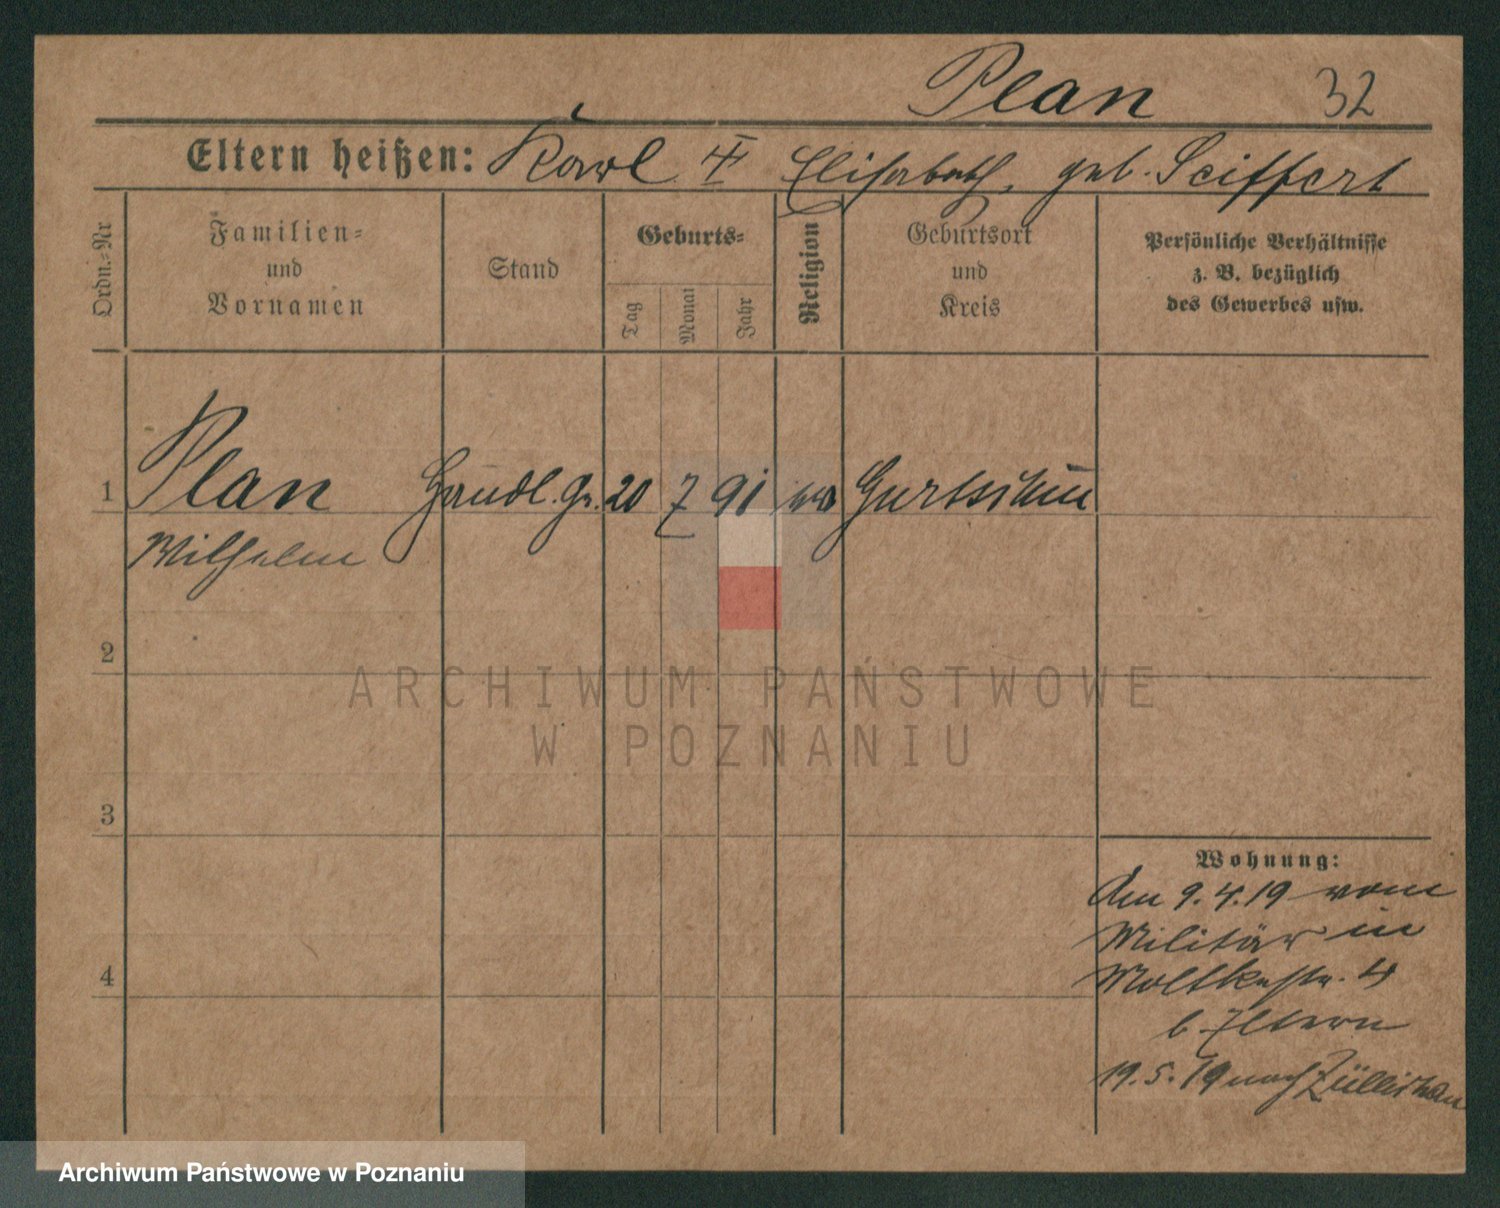 Plan 32
Eltern heißen: Karl u. Elisabeth, geb. Seiffert
Ordn.-Nr
Familien-
und
Vornamen
Stand
Geburts-
Tag
Monat
Jahr
Religion
Geburtsort
und
Kreis
Persönliche Verhältnisse
z. B. bezüglich
des Gewerbes usw.
1 Plan Handl. Ge. 20 7 91
Wilhelm
2
ARCHIWUM PAŃSTWOWE
W POZNANIU
3
4
Wohnung:
Am 9.4.19 vom
Militär in
Moltkestr. 4
b. Eltern
19.5.19 nach Züllichau
Archiwum Państwowe w Poznaniu